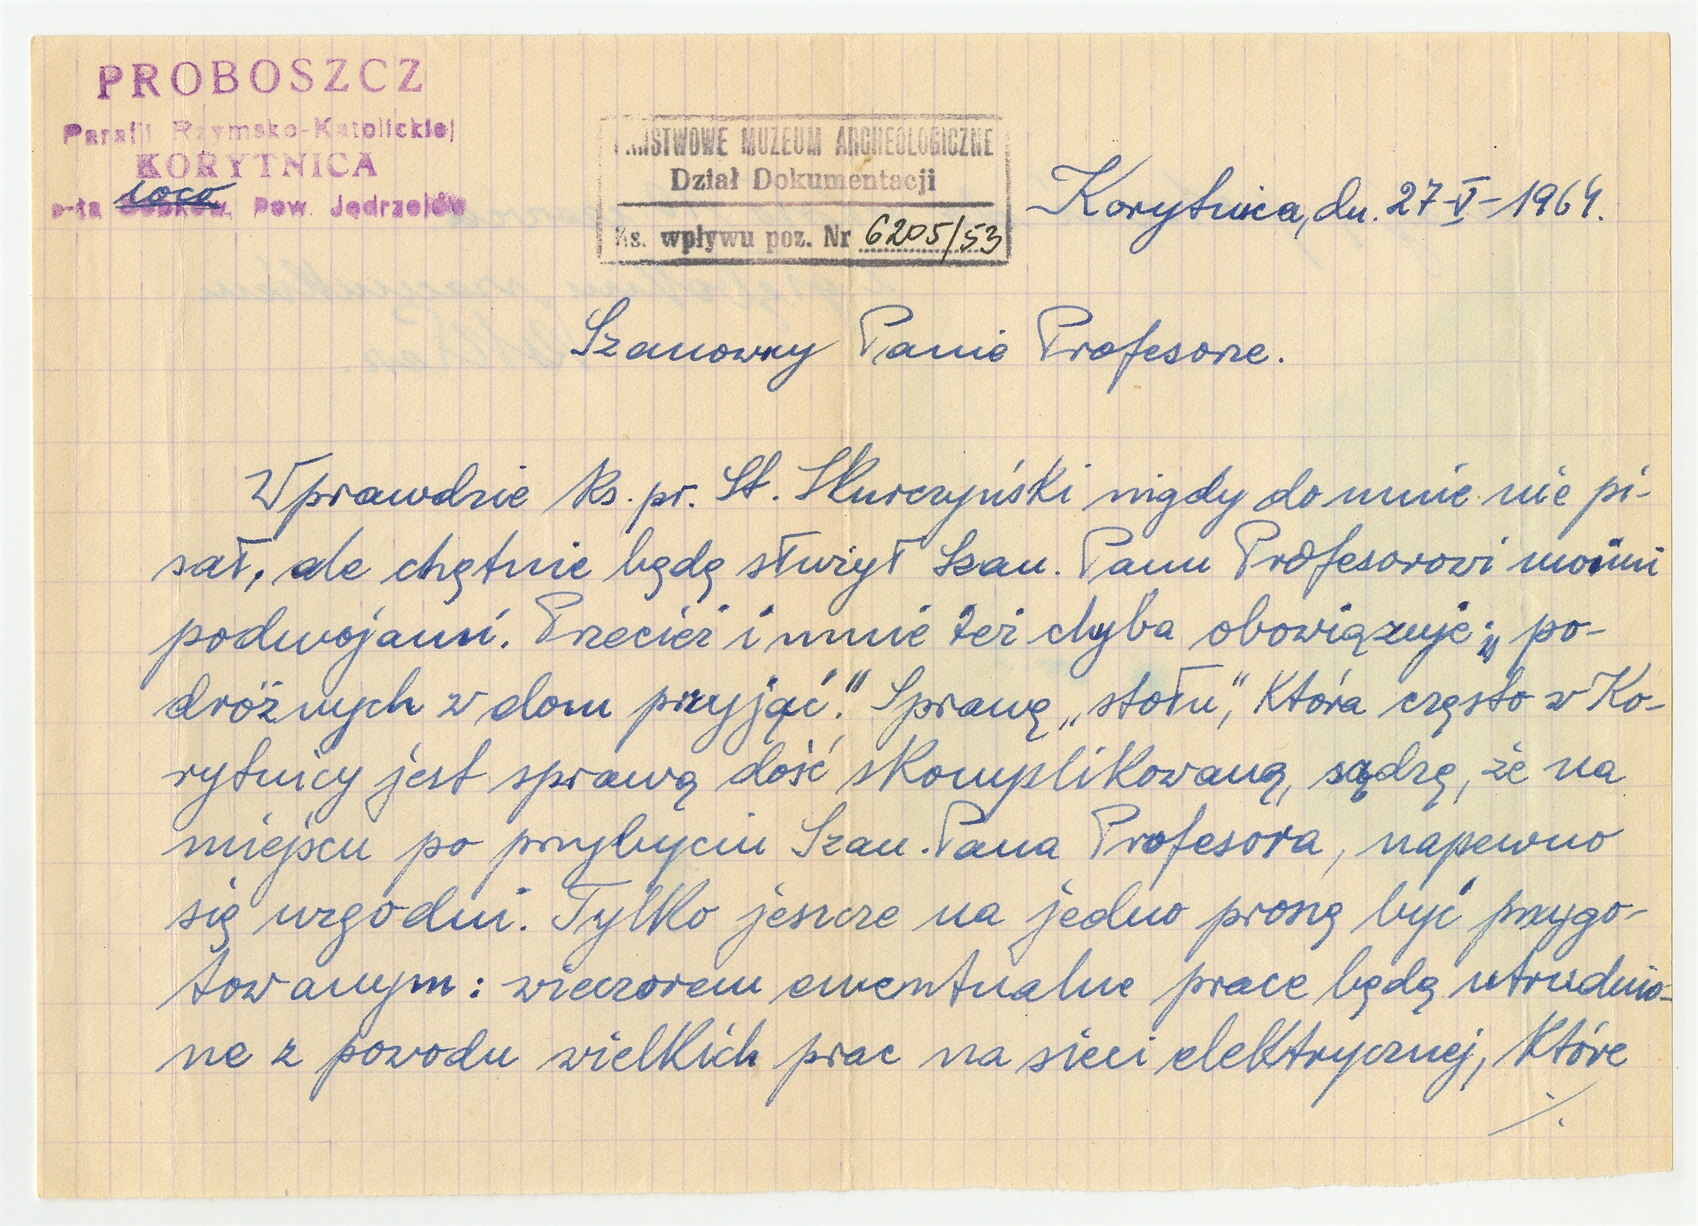 PROBOSZCZ
Parafii Rzymsko-Katolickiej
KORYTNICA
loco
p-ta Sobków, Pow. Jędrzejów
PAŃSTWOWE MUZEUM ARCHEOLOGICZNE
Dział Dokumentacji
Ks. wpływu poz. Nr 6205/53
Korytnica, dn. 27-V-1964.
Szanowny Panie Profesorze.
Wprawdzie ks. pr. St. Skurczyński nigdy do mnie nie pi-
sał, ale chętnie będę służył Szan. Panu Profesorowi moimi
podwojami. Przecież i mnie też chyba obowiązuje: „po-
dróżnych w dom przyjąć." Sprawę „stołu", która często w Ko-
rytnicy jest sprawą dość skomplikowaną, sądzę, że na
miejscu po przybyciu Szan. Pana Profesora, napewno
się uzgodni. Tylko jeszcze na jedno proszę być przygo-
towanym: wieczorem ewentualne prace będą utrudnio-
ne z powodu wielkich prac na sieci elektrycznej, które
./.